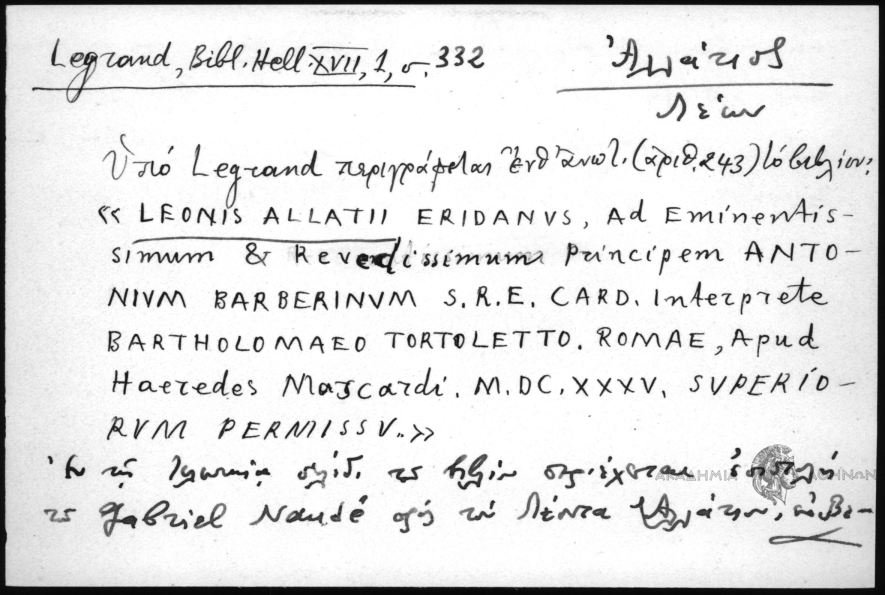 Legrand, Bibl. Hell. XVII, 1, σ. 332
Ἀλλάτιος
Λέων
Ὑπό Legrand περιγράφεται ἐνθ' ἀνωτ. (ἀριθ. 243) τό βιβλίον:
« LEONIS ALLATII ERIDANVS, Ad Eminentis-
simum & Reverendissimum Principem ANTO-
NIVM BARBERINVM S.R.E. CARD. Interprete
BARTHOLOMAEO TORTOLETTO. ROMAE, Apud
Haeredes Mascardi. M.DC.XXXV, SVPERIO-
RVM PERMISSV. »
Ἐν τῇ σελίδ. τοῦ βιβλίου περιέχεται ἐπιστολή
τοῦ Gabriel Naudé πρός τόν Λέοντα Ἀλλάτιον,
ΑΚΑΔΗΜΙΑ ΑΘΗΝΩΝ